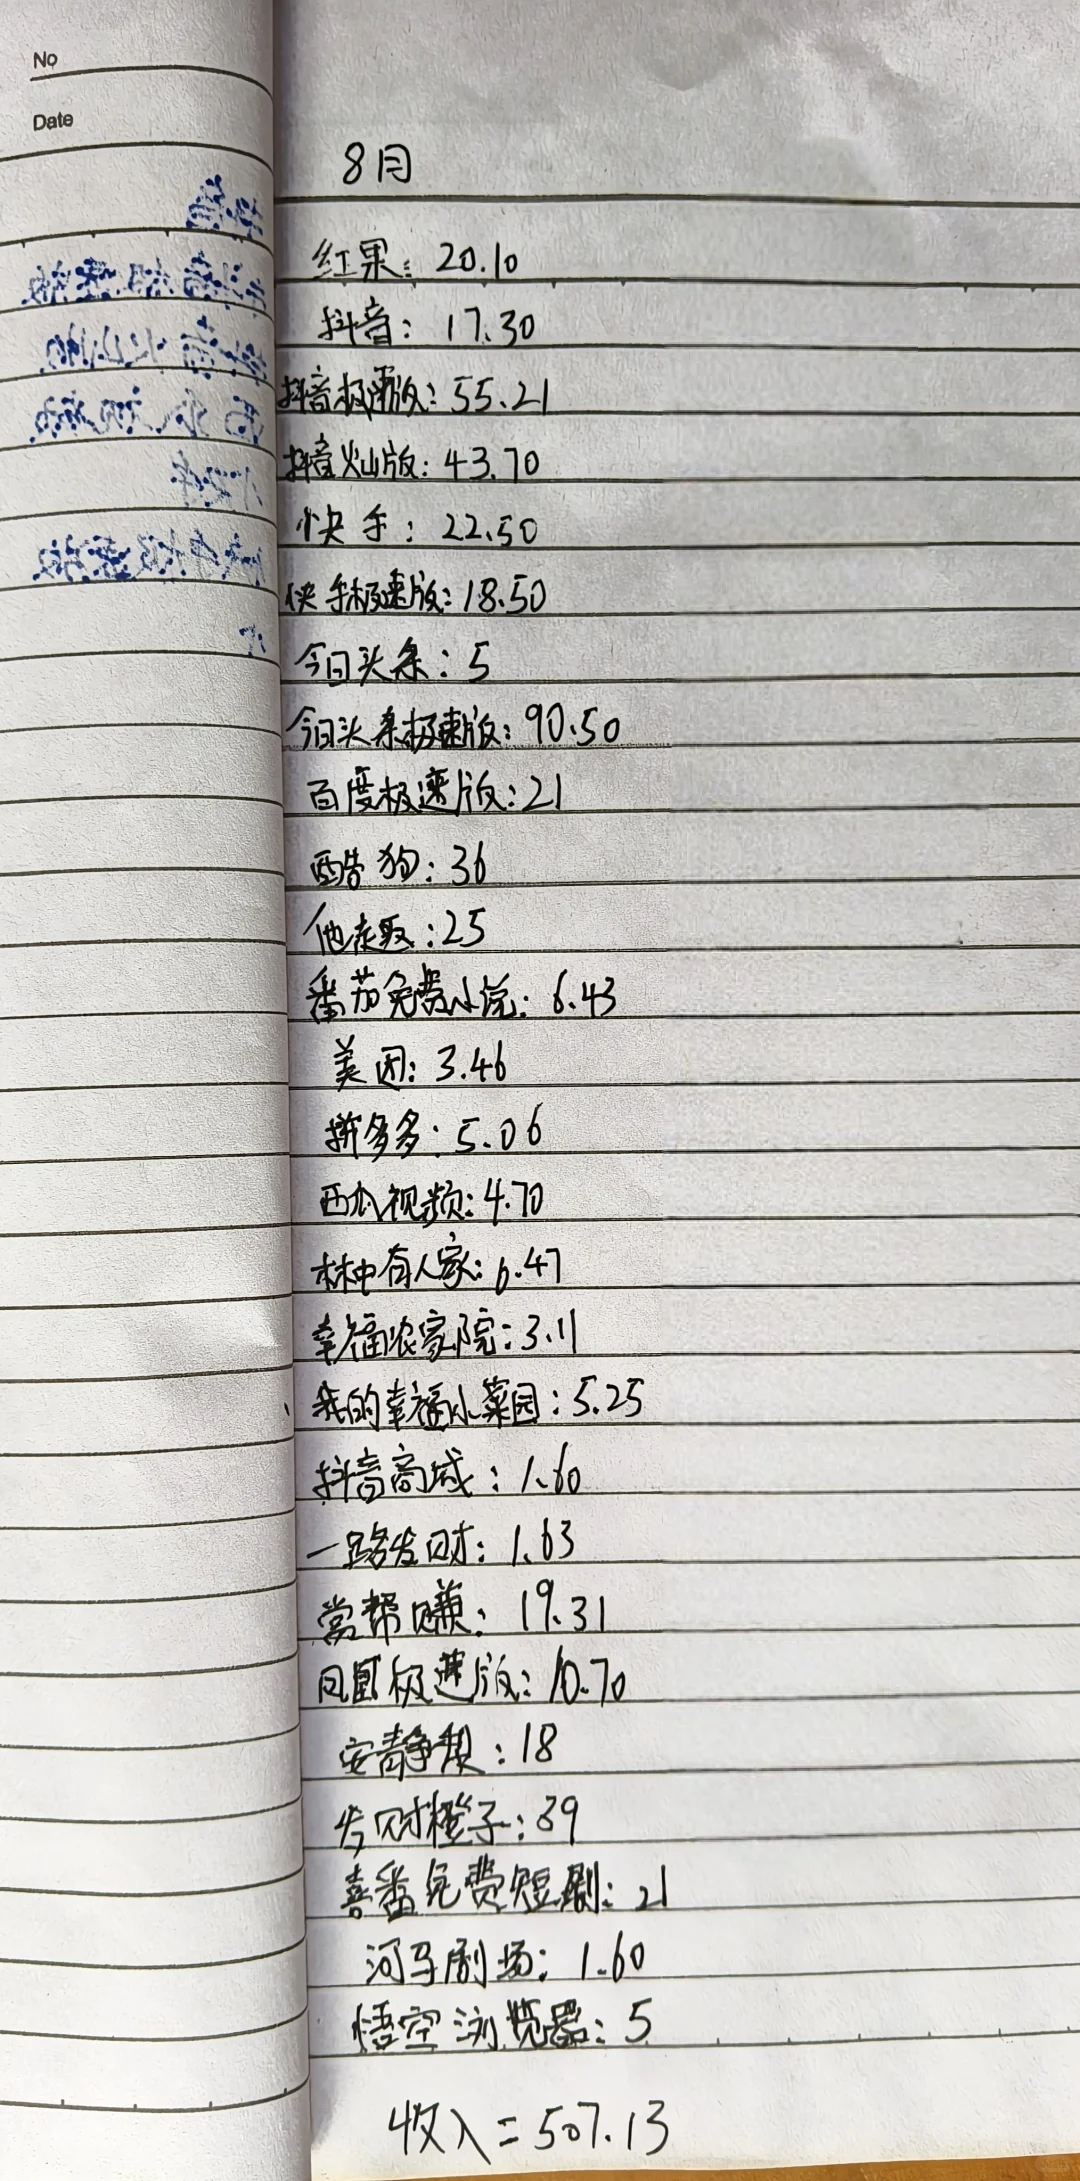 No
Date
8月
红果：20.10
抖音：17.30
抖音极速版：55.21
抖音火山版：43.70
快手：22.50
快手极速版：18.50
今日头条：5
今日头条极速版：90.50
百度极速版：21
酷狗：36
他走趣：25
番茄免费小说：6.43
美团：3.46
拼多多：5.06
西瓜视频：4.70
林中有人家：6.47
幸福农家院：3.11
我的幸福小菜园：5.25
抖音商城：1.60
一路发财：1.63
赏帮赚：19.31
凤凰极速版：10.70
安静赖：18
发财橙子：39
喜番免费短剧：21
河马剧场：1.60
悟空浏览器：5
收入=507.13